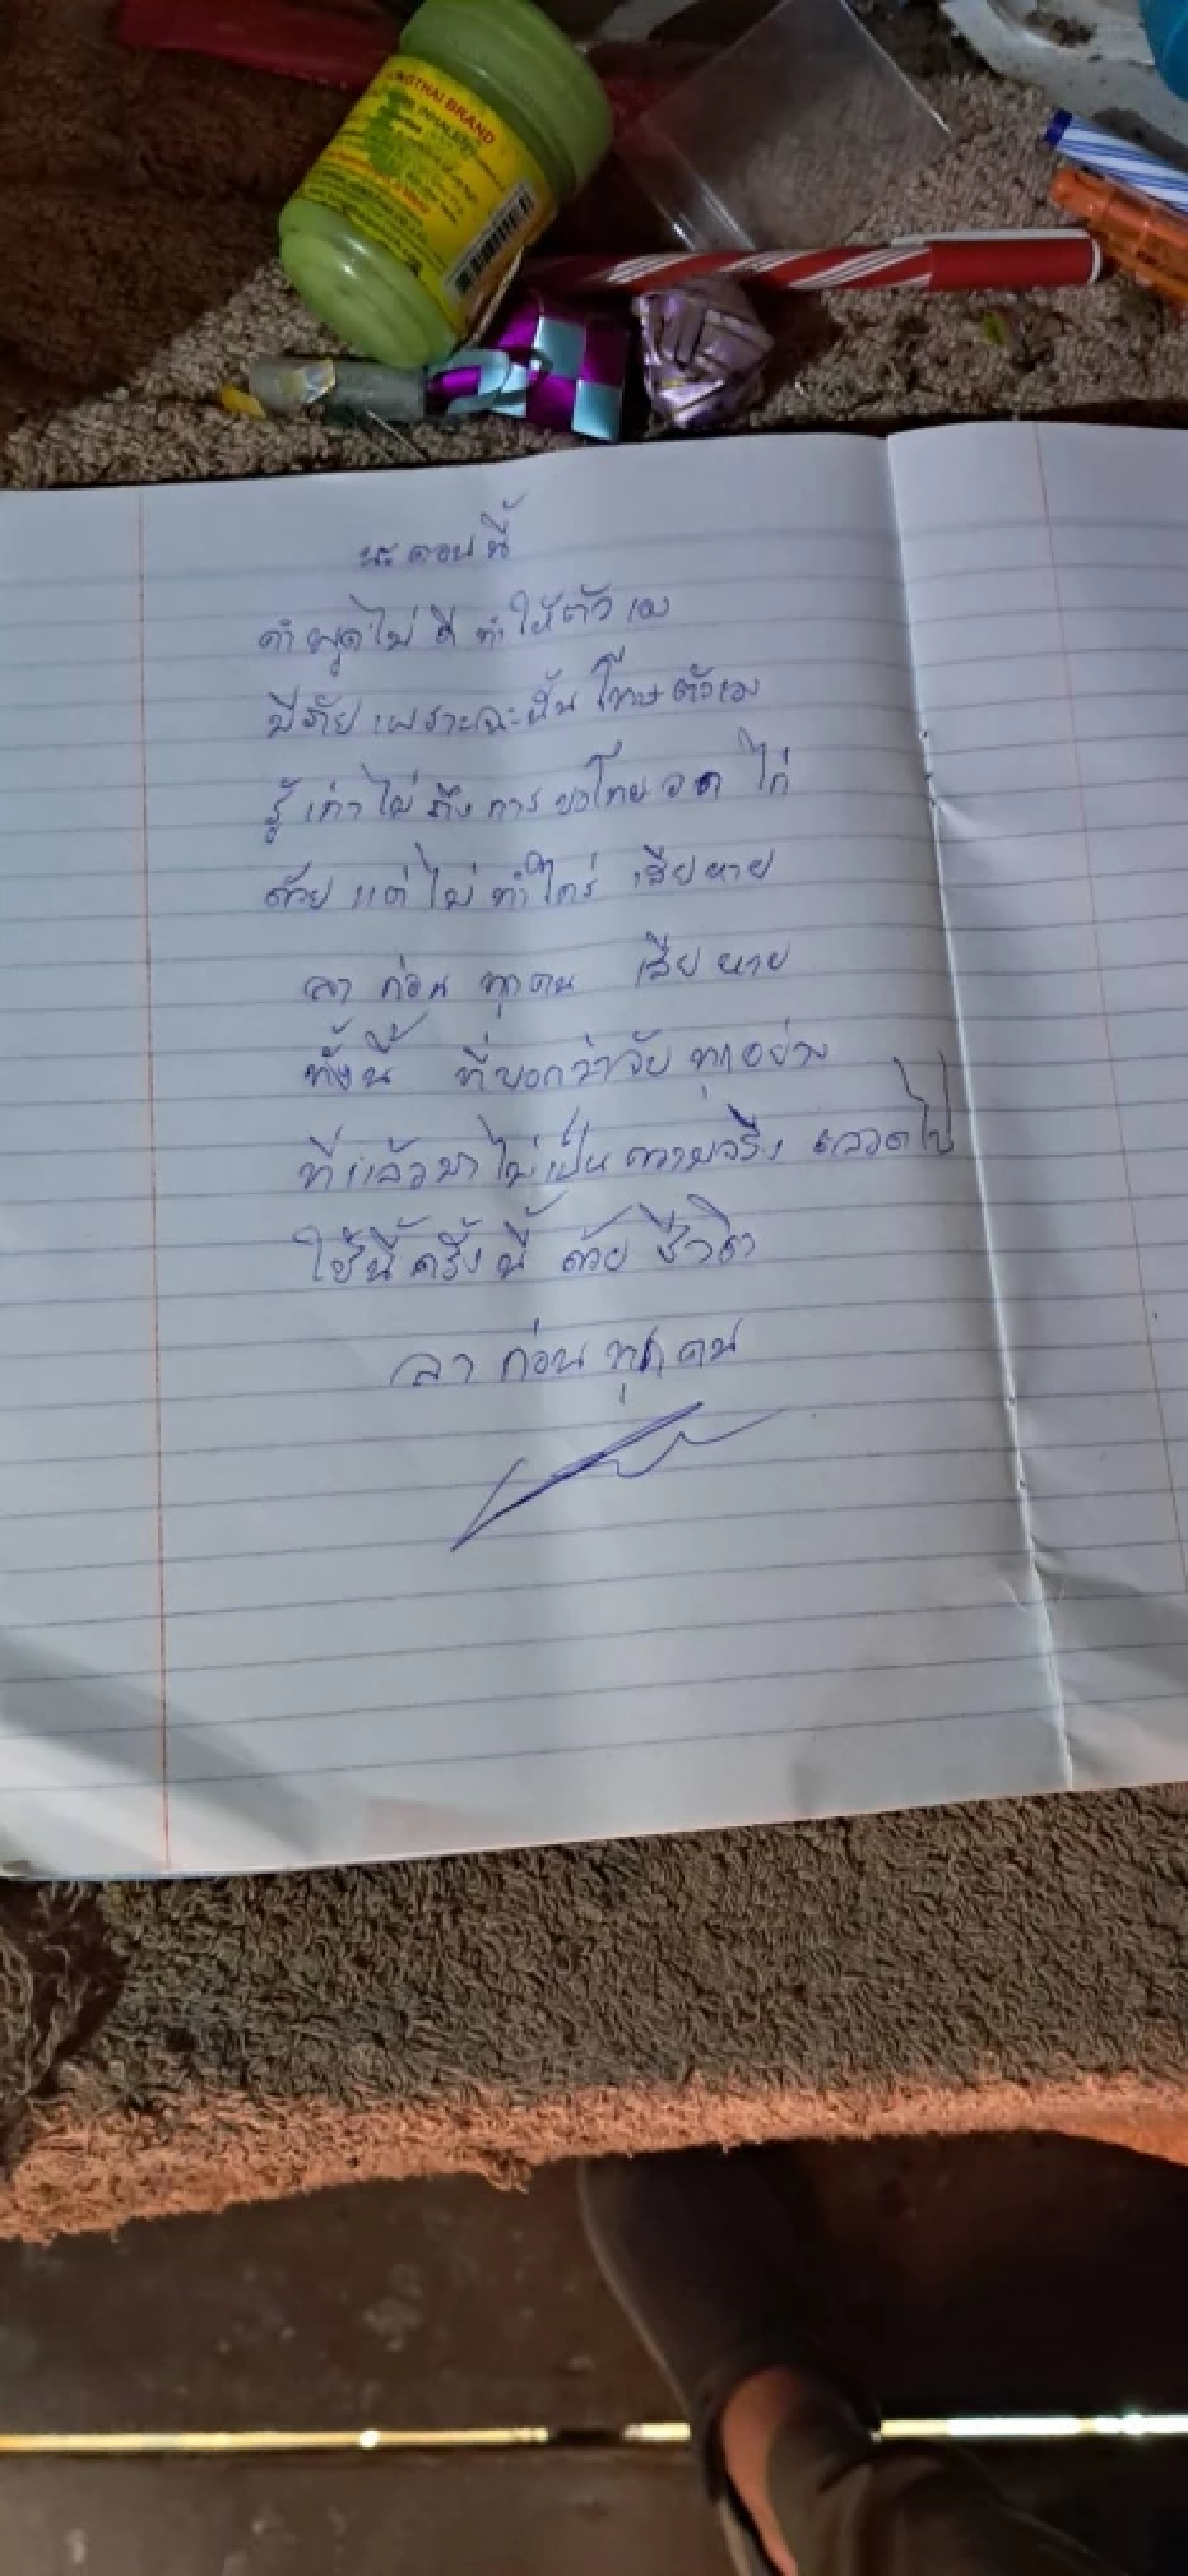 HONGTHAI BRAND
นะ ตอน นี้
คำพูดไม่ ดี ทำ ให้ตัว เอง
มีภัย เพราะฉะนั้น โทษ ตัวเอง
รู้ เท่า ไม่ ถึง การ ขอโทษ
ด้วย แต่ ไม่ ทำ ใคร เสีย หาย
ลา ก่อน ทุก คน เสีย หาย
ทั้งนี้ ที่ บอก ว่า ทุก อย่าง
ที่ แล้ว มา ไม่ เป็น ความจริง
ใช้นี้ ครั้ง นี้ ด้วย ชีวิต
ลา ก่อน ทุก คน